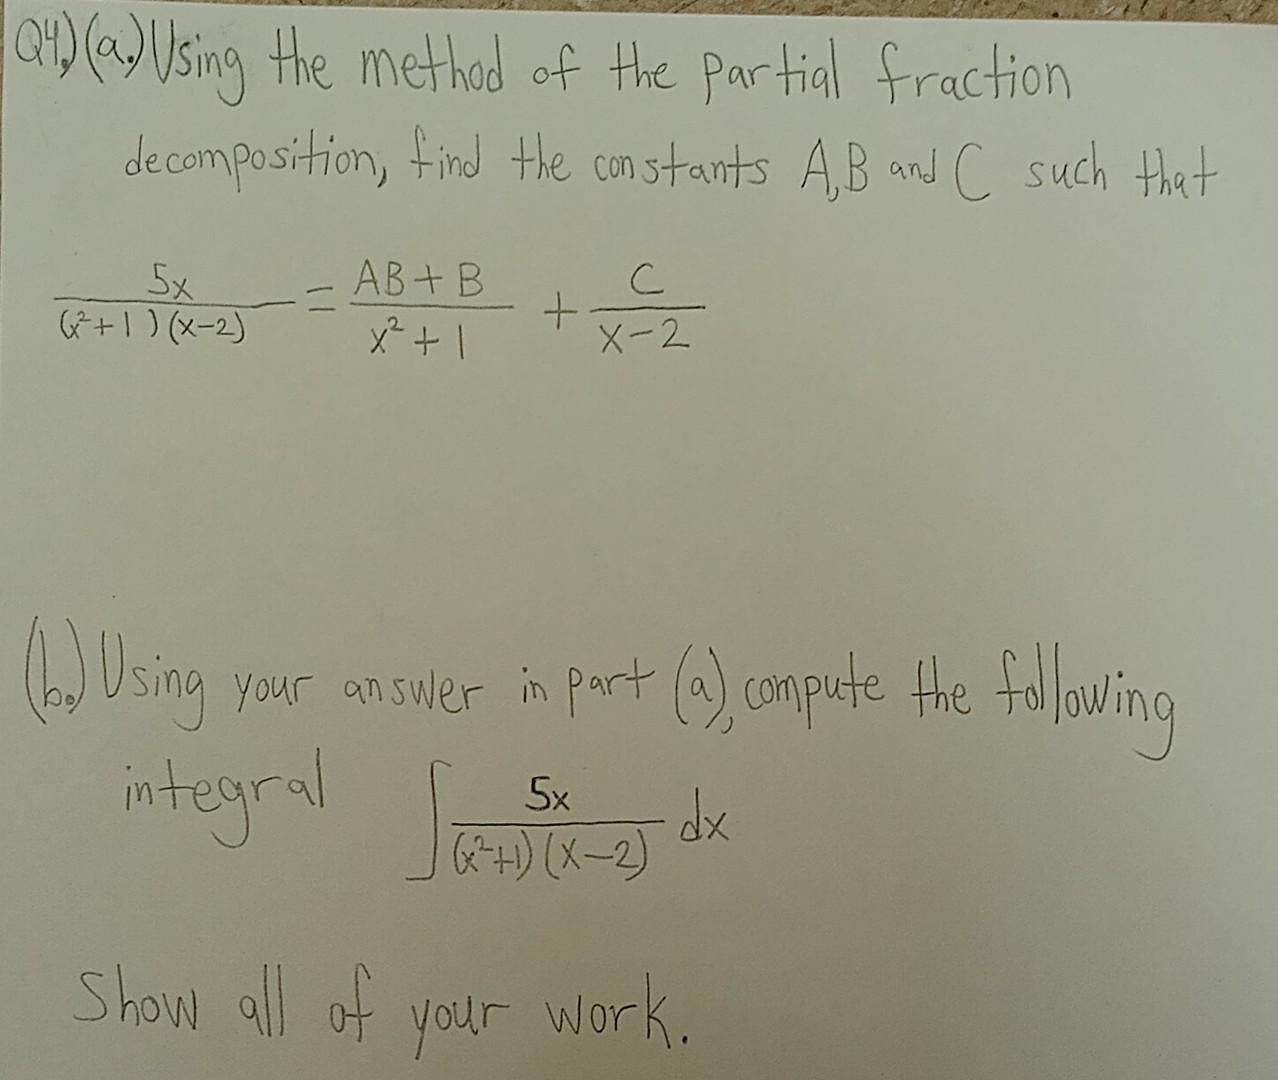 Q4.) (a.) Using the method of the partial fraction
decomposition, find the constants A, B and C such that
5x/((x²+1)(x-2)) = (AB+B)/(x²+1) + C/(x-2)
(b.) Using your answer in part (a), compute the following
integral ∫ 5x/((x²+1)(x-2)) dx
Show all of your work.